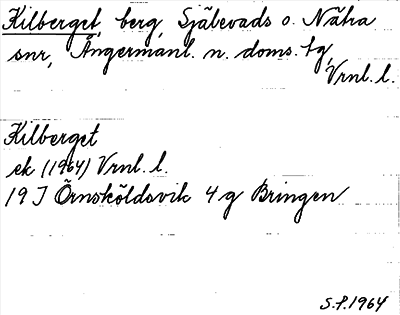 Kilberget, berg, Själevads o. Nätra
snr, Ångermanl. n. doms. tg,
Vrnl. l.
Kilberget
ek (1964) Vrnl. l.
19 J Örnsköldsvik 4 g Bringen
S.P. 1964